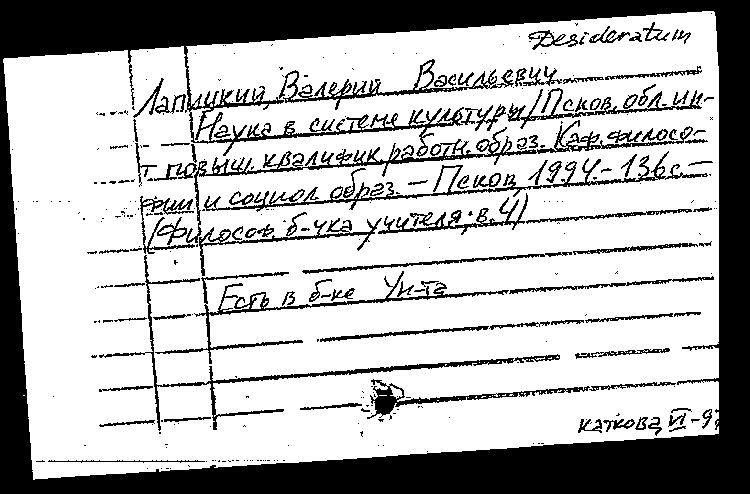 Desideratum
Лапицкий, Валерий Васильевич
Наука в системе культуры / Псков. обл. ин-
т повыш. квалифик. работн. образ. Каф. филосо-
фии и социол. образ. — Псков, 1994. - 136 с. —
(Философ. б-чка учителя; в. 4)
Есть в б-ке Ун-та
Каткова, VI - 97